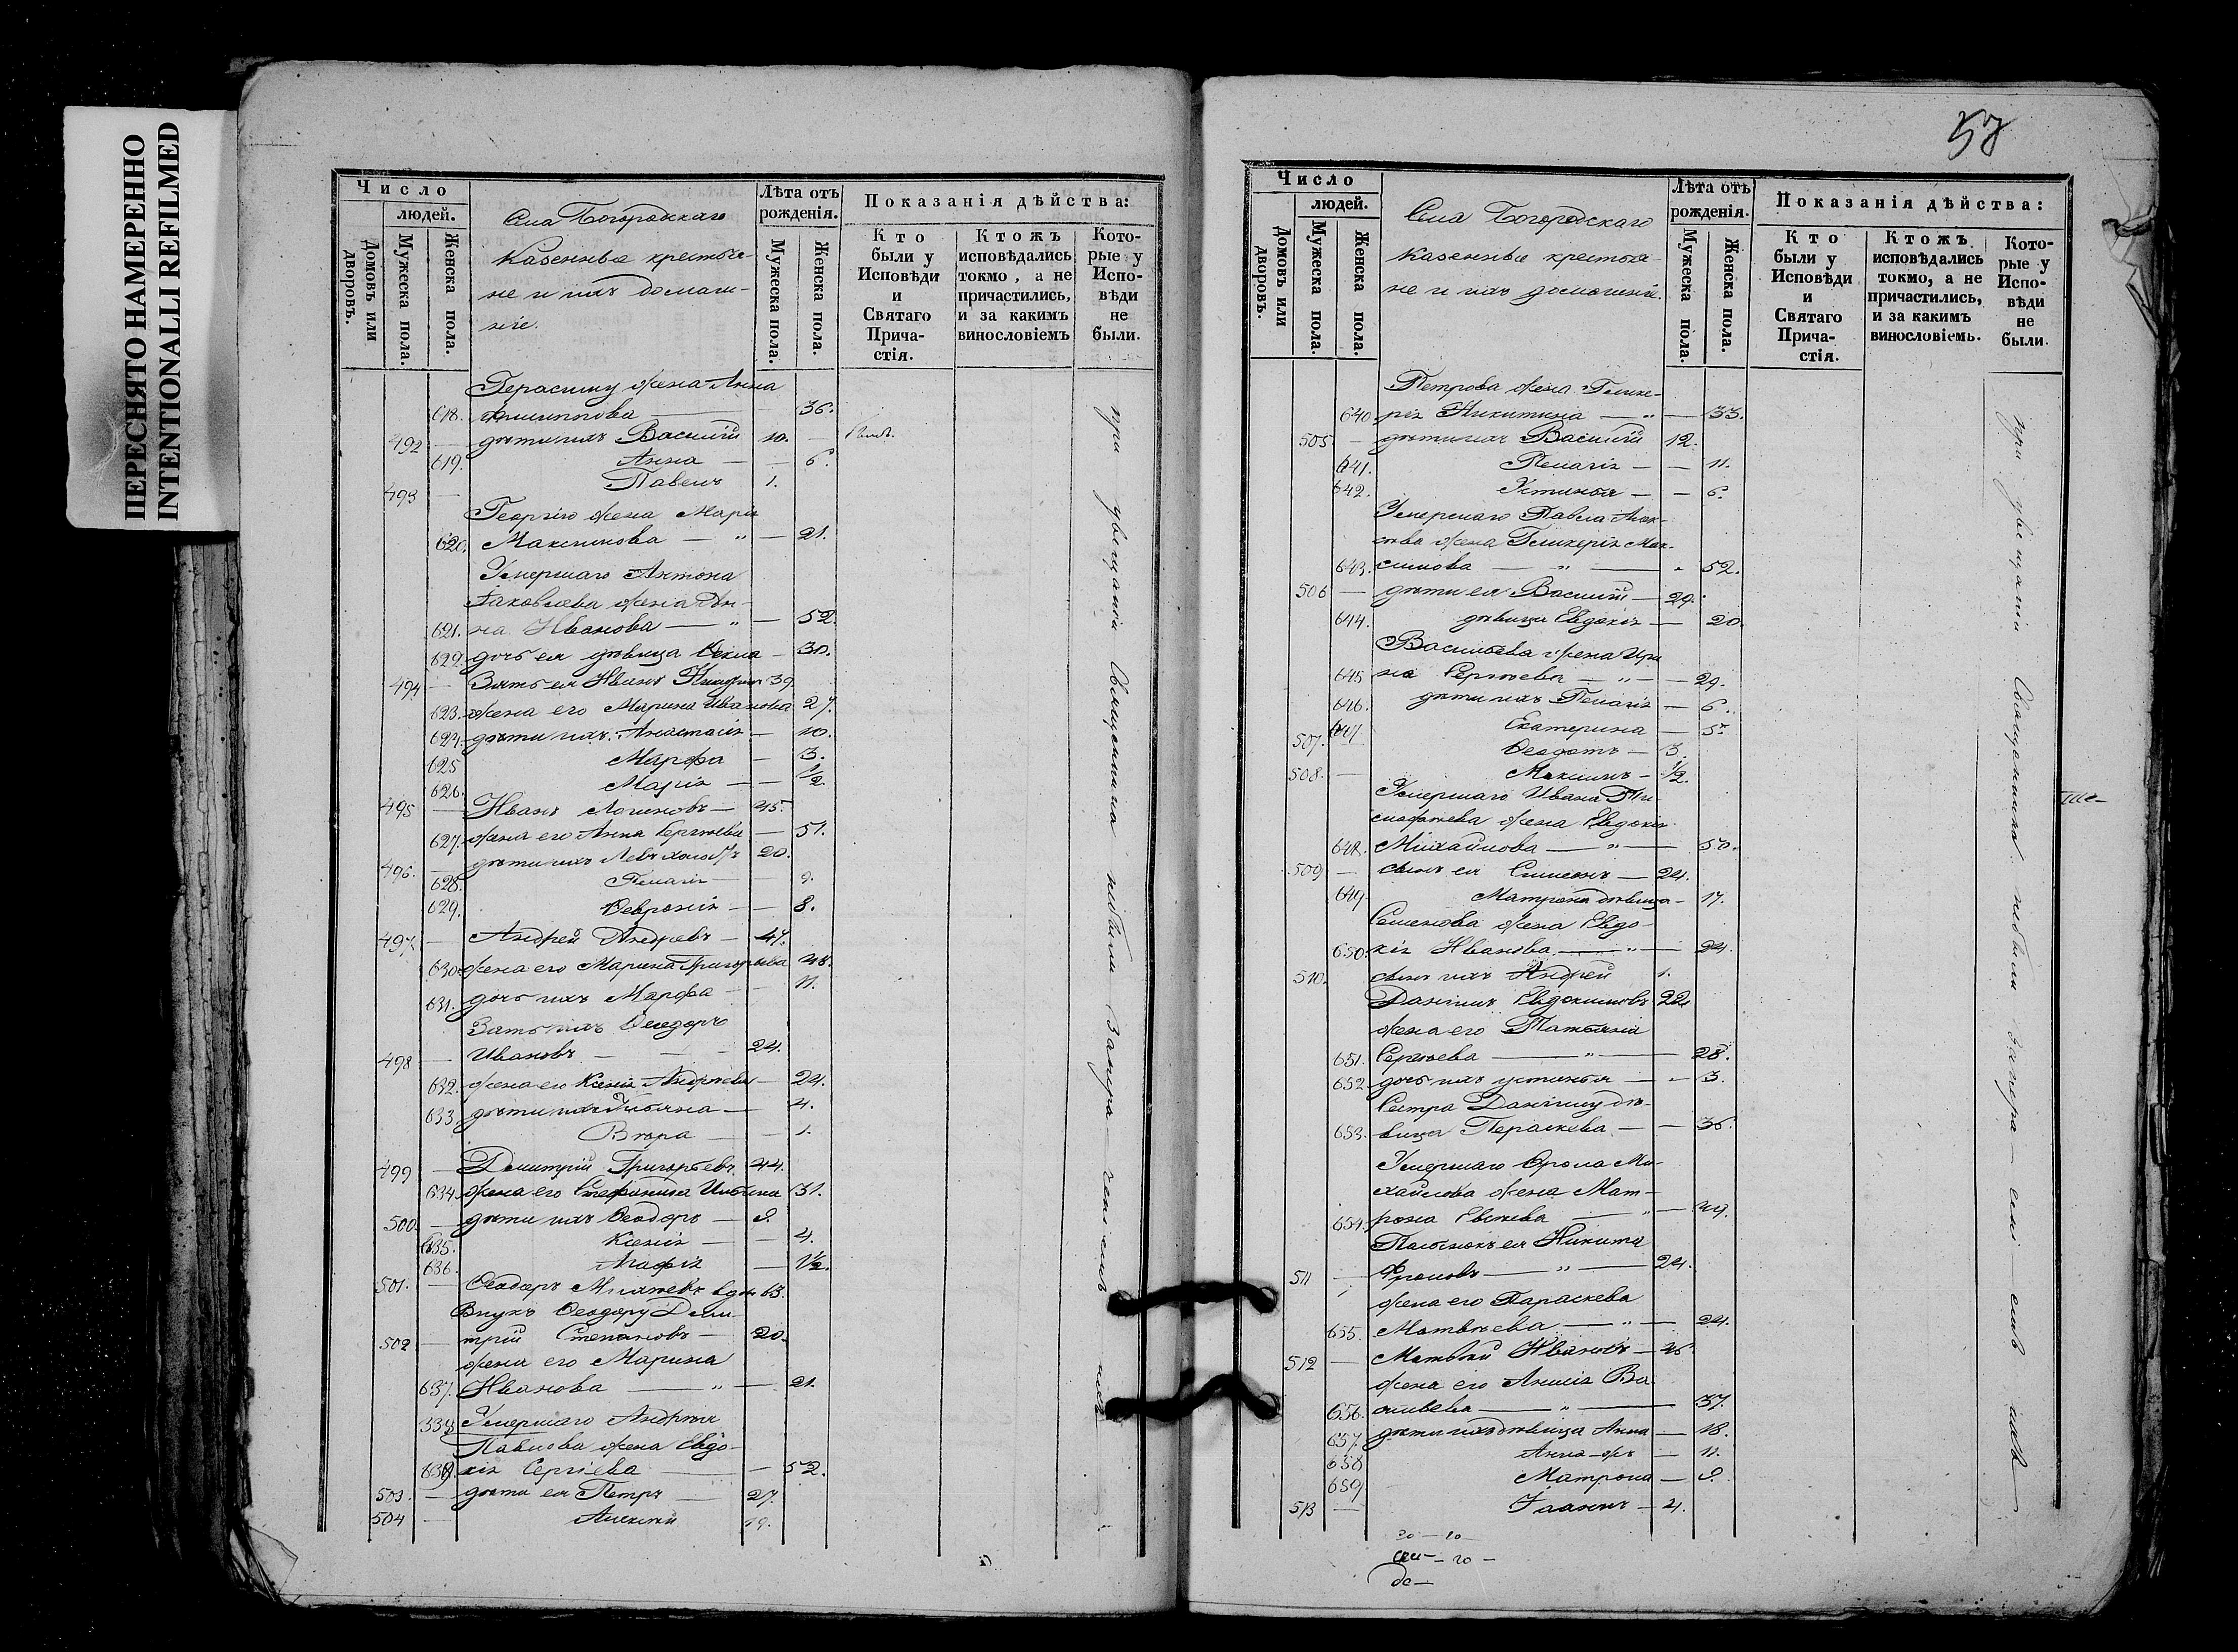 ПЕРЕСНЯТО НАМЕРЕННО
INTENTIONALLI REFILMED
Число
людей.
Домовъ или дворовъ.
Мужеска пола.
Женска пола.
Села Богородскаго
Казенные крестья-
не и ихъ домаш-
ніе.
Лѣта отъ рожденія.
Мужеска пола.
Женска пола.
Показанія дѣйства:
Кто были у Исповѣди и Святаго Прича-стія.
Ктожъ исповѣдались токмо, а не причастились, и за какимъ винословіемъ
Кото-рые у Испо-вѣди не были.
Герасиму жена Анна
618. Филиппова 36.
492 — дѣти ихъ Василій 10.
619. Анна — 6.
493 — Павелъ 1.
Георгію жена Марія
620. Максимова — " — 21.
Умершаго Антона
Іаковлева жена Ан-
621. на Иванова — " — 52.
622. дочь ея дѣвица Фекла — 30.
494 — Зять ея Иванъ 39
623. жена его Марина Иванова 27.
624. дѣти ихъ Анастасія — 10.
625 Марфа — 3.
626. Марія — 1/2.
495 — Иванъ Логиновъ — 45.
627. жена его Анна Сергѣева — 51.
496. — дѣти ихъ Левъ холостъ 20.
628. Пелагія — 9.
629. Февронія — 8.
497 — Андрей Андреевъ — 47.
630. жена его Марина Григорьева 48.
631. дочь ихъ Марфа — 11.
Зять ихъ Феодоръ
498 — Ивановъ — 24.
632. жена его Ксенія Андреева — 24.
633. дѣти ихъ Татьяна — 4.
Вѣра — 1.
499 — Димитрій Григорьевъ 44.
634. жена его Стефанида Ильина 31.
500. — дѣти ихъ Феодоръ — 9.
635. Ксенія — 4.
636. Агафія — 1 1/2.
501. — Феодоръ вдов 63.
Внукъ Феодору Дими-
502 — трій Степановъ — 20.
жена его Марина
637. Иванова — " — 21.
338 Умершаго Андрея
Павлова жена Евдо-
638. кія Сергіева — 52.
503. — дѣти ея Петръ — 27.
504 — Алексѣй 19.
при увещаніи Священника небыли
57
Число
людей.
Домовъ или дворовъ.
Мужеска пола.
Женска пола.
Села Богородскаго
Казенные крестья-
не и ихъ домашніе.
Лѣта отъ рожденія.
Мужеска пола.
Женска пола.
Показанія дѣйства:
Кто были у Исповѣди и Святаго Прича-стія.
Ктожъ исповѣдались токмо, а не причастились, и за какимъ винословіемъ.
Кото-рые у Испо-вѣди не были.
Петрова жена Глике-
640. рія Никитина — " — 33.
505. — дѣти ихъ Василій 12.
641. Пелагія — — 11.
642. Устинья — — 6.
Умершаго Павла Алек-
сѣева жена Гликерія Мак-
643. симова — " — 52.
506 — дѣти ея Василій — 29.
644. дѣвица Евдокія — 20.
Васильева жена Ири
645 на Сергѣева — " — 29.
646. дѣти ихъ Пелагія — 6.
647 Екатерина — 5.
507. — Феодотъ — 3.
508. — Максимъ — 1/2.
Умершаго Ивана Ти-
мофѣева жена Евдокія
648. Михайлова — " — 50.
509 — сынъ ея Симеонъ — 24.
649 Матрона дѣвица — 17.
Семенова жена Евдо-
650. кія Иванова — " — 24.
510. сынъ ихъ Андрей 1.
Даніилъ Евдокимовъ 22
жена его Татьяна
651. Сергѣева — " — 28.
652. дочь ихъ устинья — " 3.
Сестра Даніилу дѣ-
653. вица Параскева — — 36.
Умершаго Фрола Ми-
хайлова жена Мат-
654. рона — " — 49.
Пасынокъ ея Никита
511 — Фроловъ — " — 24.
жена его Параскева
655. Матвѣева — " — 24.
512 — Матвѣй Ивановъ — 46
жена его Анисія Ва
656. сильева — " — 37.
657 дѣти ихъ дѣвица Анна — 18.
658 Анна — 11.
659 Матрона — 9.
513 — Іоаннъ — 4.
при увещаніи Священника небыли
20 — 20